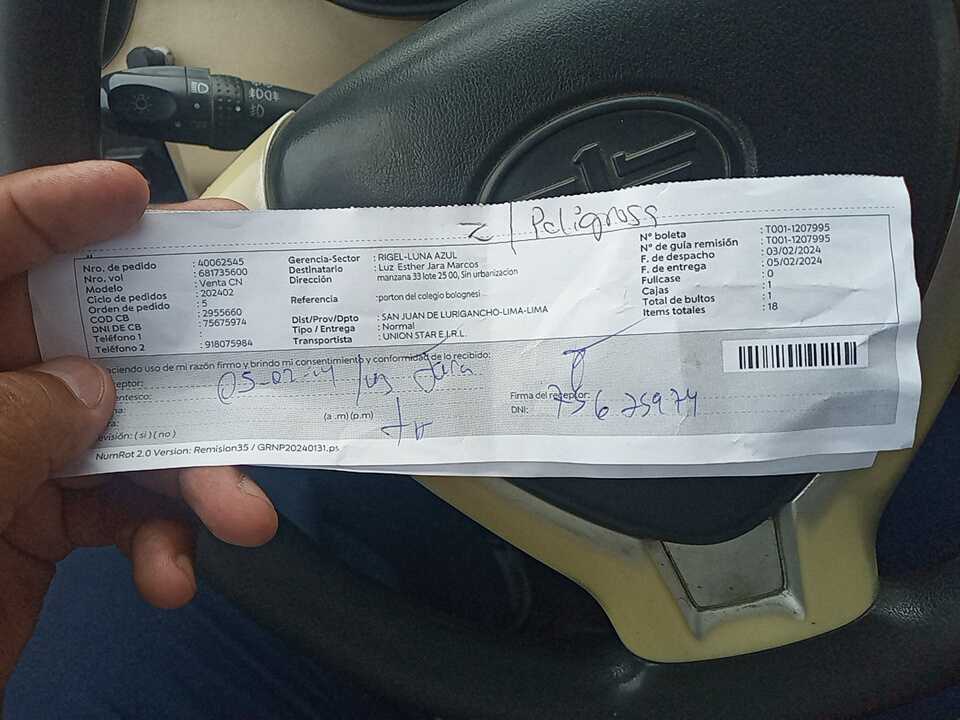 Z / Peligrosa
Nro. de pedido : 40062545
Nro. vol : 681735600
Modelo : Venta CN
Ciclo de pedidos : 202402
Orden de pedido : 5
COD CB : 2955660
DNI DE CB : 75675974
Teléfono 1
Teléfono 2 : 918075984
Gerencia-Sector : RIGEL-LUNA AZUL
Destinatario : Luz Esther Jara Marcos
Dirección manzana 33 lote 25 00, Sin urbanizacion
Referencia :porton del colegio bolognesi
Dist/Prov/Dpto : SAN JUAN DE LURIGANCHO-LIMA-LIMA
Tipo / Entrega : Normal
Transportista : UNION STAR E.I.R.L.
Nº boleta : T001-1207995
Nº de guía remisión : T001-1207995
F. de despacho : 03/02/2024
F. de entrega : 05/02/2024
Fullcase : 0
Cajas : 1
Total de bultos : 1
Items totales : 18
aciendo uso de mi razón firmo y brindo mi consentimiento y conformidad de lo recibido:
ceptor: 05-02-24 Luz Jara
entesco:
(a .m) (p.m)
evisión: ( si ) ( no )
Firma del receptor:
DNI: 75675974
NumRot 2.0 Version: Remision35 / GRNP20240131.ps